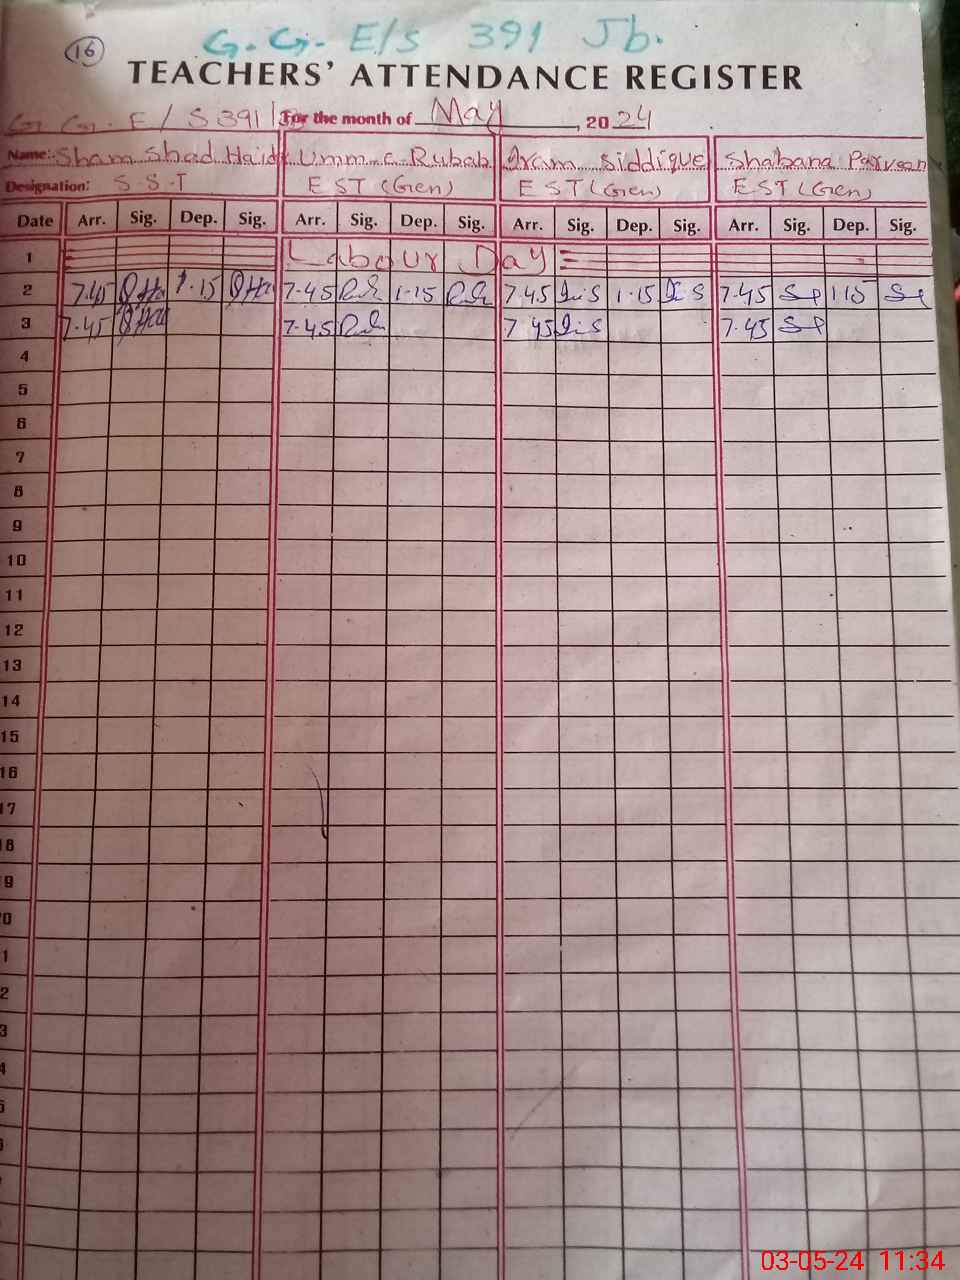 16
G. G. E/S 391 Jb.
TEACHERS' ATTENDANCE REGISTER
G. G. E/S 391 For the month of May, 2024
Name: Sham Shad Haider Umm e Rubab Iram Siddique Shabana Parveen
Designation: S.S.T EST (Gen) EST (Gen) EST (Gen)
Date Arr. Sig. Dep. Sig. Arr. Sig. Dep. Sig. Arr. Sig. Dep. Sig. Arr. Sig. Dep. Sig.
1 Labour Day
2 7.45 1.15 7.45 1.15 7.45 1.15 7.45 1.15
3 7.45 7.45 7.45 7.45
4
5
6
7
8
9
10
11
12
13
14
15
16
17
18
9
0
1
2
3
4
5
03-05-24 11:34